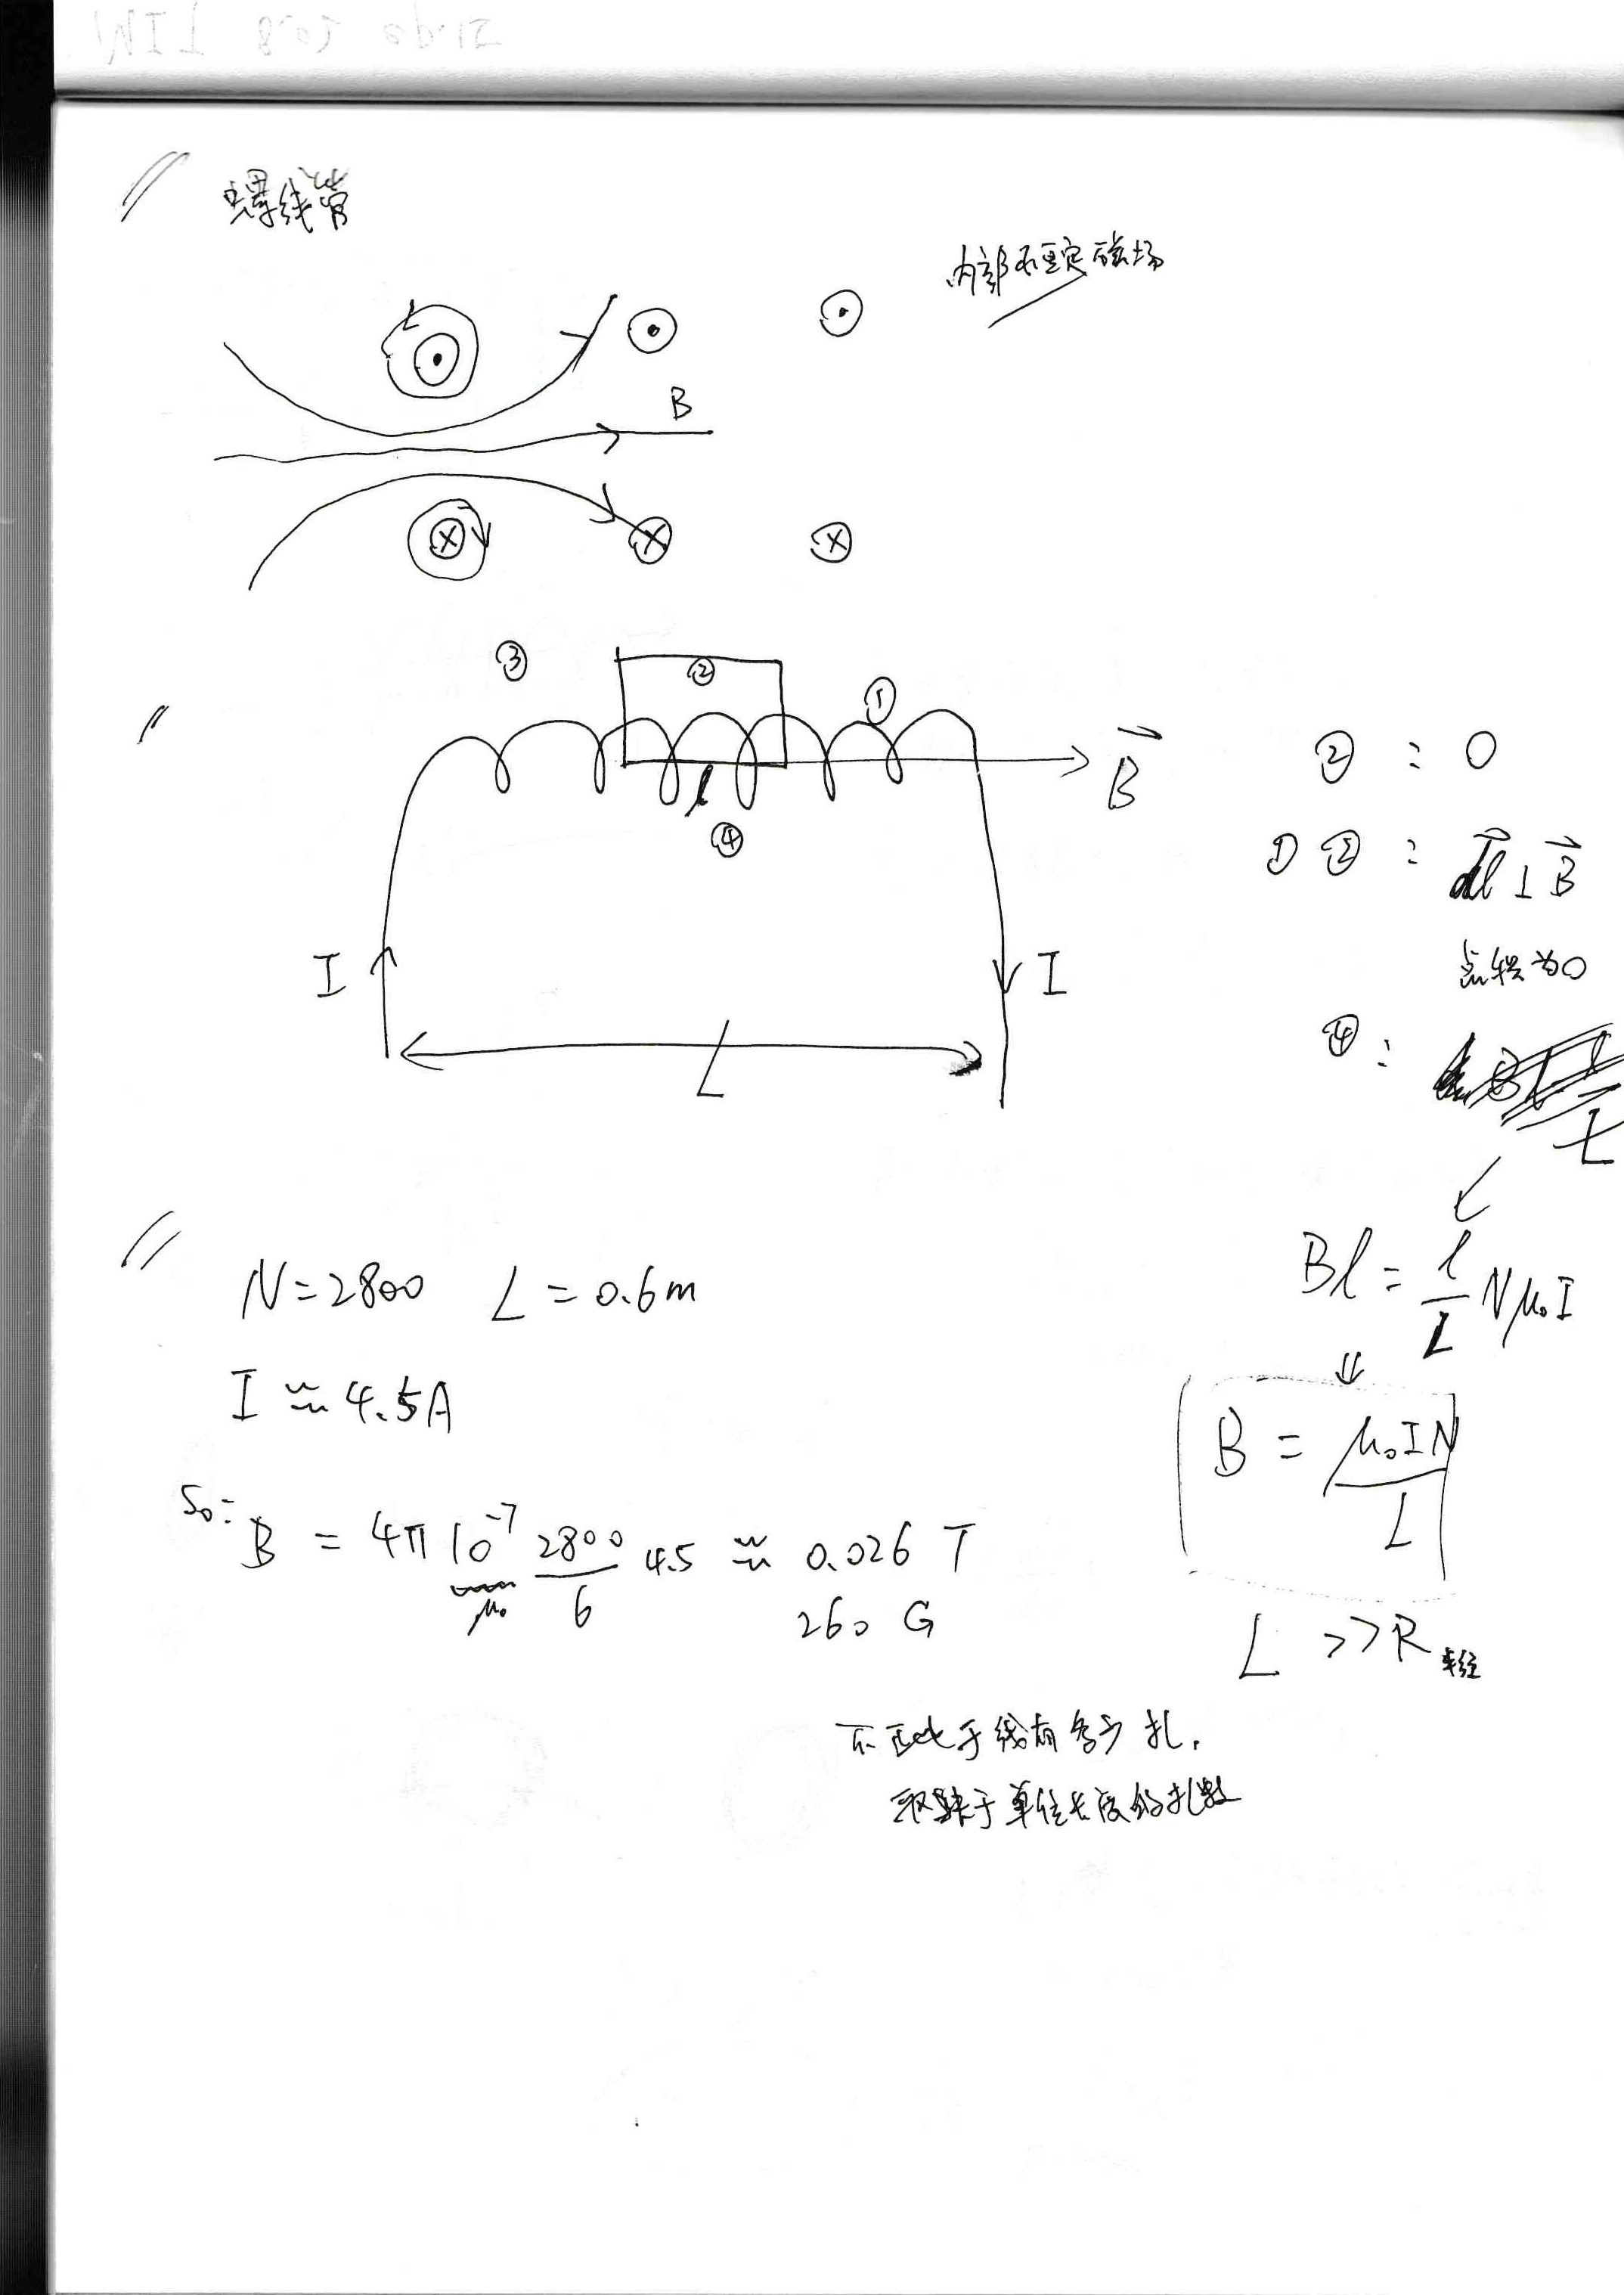 MIT 8.02 ep.15
螺线管
内部 恒定磁场
B
③ ② ①
l
④
B
I I
L
② : 0
① ③ : dl ⊥ B
点乘为0
④ :
Bl = l/L Nμ₀I
⇓
B = μ₀IN / L
L >> R 半径
N=2800 L = 0.6m
I ≈ 4.5A
So: B = 4π10⁻⁷ 2800/6 4.5 ≈ 0.026 T
μ₀
260 G
不正比于线有多少扎.
取决于单位长度的扎数